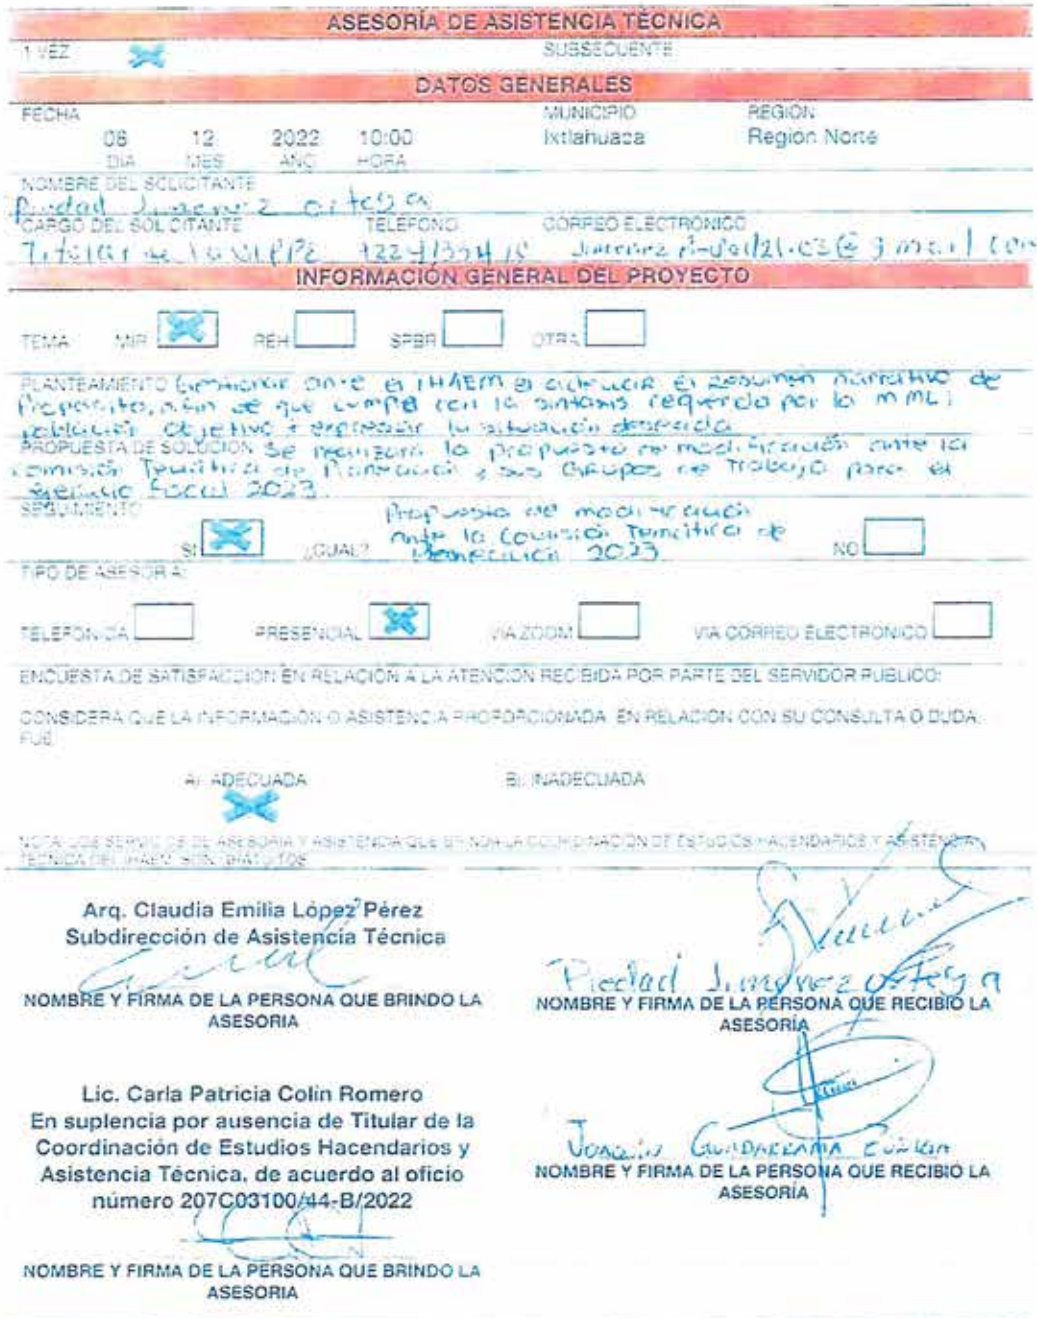 ASESORÍA DE ASISTENCIA TÉCNICA
1 VEZ SUBSECUENTE
DATOS GENERALES
FECHA MUNICIPIO REGIÓN
12 2022 10:00 Ixtlahuaca Región Norte
DIA MES AÑO HORA
NOMBRE DEL SOLICITANTE
Piedad Jimenez ortega
CARGO DEL SOLICITANTE TELEFONO CORREO ELECTRONICO
Titular de la UIPPE
INFORMACIÓN GENERAL DEL PROYECTO
TEMA MIR REH SPBR OTRA
PLANTEAMIENTO Gestionar ante el IHAEM el adecuar el Resumen narrativo de
Proposito, a fin de que cumpla con la sintaxis requerida por la MML:
población objetivo + expresar la situación deseada
PROPUESTA DE SOLUCIÓN Se realizará la propuesta de modificación ante la
Comisión Temática de Planeación y sus Grupos de Trabajo para el
ejercicio fiscal 2023.
SEGUIMIENTO
SI ¿CUAL? Propuesta de modificación
ante la Comisión Temática de
Planeación 2023. NO
TIPO DE ASESORIA:
TELEFONICA PRESENCIAL VIA ZOOM VIA CORREO ELECTRONICO
ENCUESTA DE SATISFACCION EN RELACION A LA ATENCION RECIBIDA POR PARTE DEL SERVIDOR PUBLICO:
CONSIDERA QUE LA INFORMACION O ASISTENCIA PROPORCIONADA EN RELACION CON SU CONSULTA O DUDA,
FUE:
A). ADECUADA B). INADECUADA
NOTA: LOS SERVICIOS DE ASESORIA Y ASISTENCIA QUE BRINDA LA COORDINACION DE ESTUDIOS HACENDARIOS Y ASISTENCIA
TECNICA DEL IHAEM, SON GRATUITOS
Arq. Claudia Emilia López Pérez
Subdirección de Asistencia Técnica
NOMBRE Y FIRMA DE LA PERSONA QUE BRINDO LA
ASESORIA
Piedad Jimenez ortega
NOMBRE Y FIRMA DE LA PERSONA QUE RECIBIÓ LA
ASESORÍA
Lic. Carla Patricia Colín Romero
En suplencia por ausencia de Titular de la
Coordinación de Estudios Hacendarios y
Asistencia Técnica, de acuerdo al oficio
número 207C03100/44-B/2022
NOMBRE Y FIRMA DE LA PERSONA QUE BRINDO LA
ASESORIA
JOAQUÍN GUADARRAMA
NOMBRE Y FIRMA DE LA PERSONA QUE RECIBIÓ LA
ASESORÍA